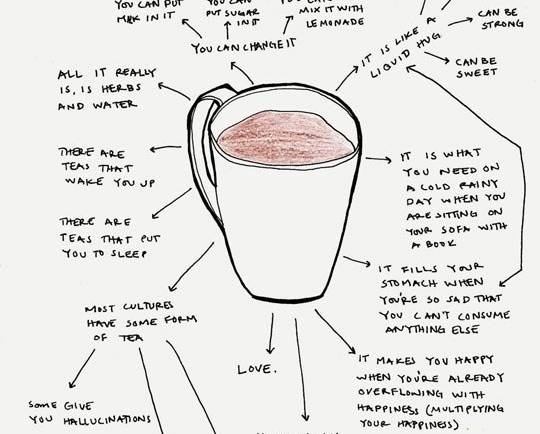 YOU CAN PUT
MILK IN IT
YOU CAN
PUT SUGAR
IN IT
MIX IT WITH
LEMONADE
YOU CAN CHANGE IT
IT IS LIKE A
LIQUID HUG
CAN BE
STRONG
CAN BE
SWEET
ALL IT REALLY
IS, IS HERBS
AND WATER
THERE ARE
TEAS THAT
WAKE YOU UP
THERE ARE
TEAS THAT PUT
YOU TO SLEEP
IT IS WHAT
YOU NEED ON
A COLD RAINY
DAY WHEN YOU
ARE SITTING ON
YOUR SOFA WITH
A BOOK
IT FILLS YOUR
STOMACH WHEN
YOU'RE SO SAD THAT
YOU CAN'T CONSUME
ANYTHING ELSE
MOST CULTURES
HAVE SOME FORM
OF TEA
SOME GIVE
YOU HALLUCINATIONS
LOVE.
IT MAKES YOU HAPPY
WHEN YOU'RE ALREADY
OVERFLOWING WITH
HAPPINESS (MULTIPLYING
YOUR HAPPINESS).